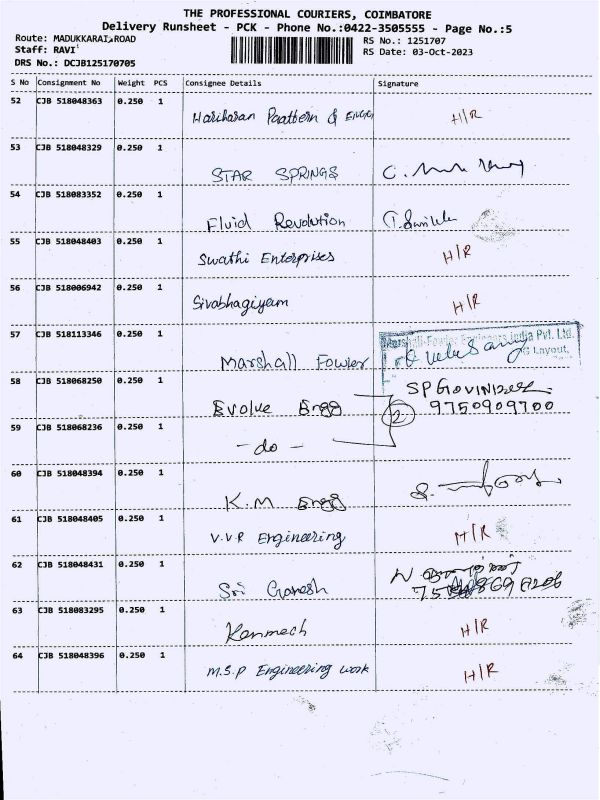 THE PROFESSIONAL COURIERS, COIMBATORE
Delivery Runsheet - PCK - Phone No.:0422-3505555 - Page No.:5
Route: MADUKKARAI ROAD
RS No.: 1251707
Staff: RAVI
RS Date: 03-Oct-2023
DRS No.: DCJB125170705
S No Consignment No Weight PCS Consignee Details Signature
52 CJB 518048363 0.250 1
Hariharan Paattern & ENGG H/R
53 CJB 518048329 0.250 1
STAR SPRINGS C.
54 CJB 518083352 0.250 1
Fluid Revolution
55 CJB 518048403 0.250 1
Swathi Enterprises H/R
56 CJB 518006942 0.250 1
Sivabhagiyam H/R
57 CJB 518113346 0.250 1
Marshall-Fowler Engineers india Pvt. Ltd.
Layout,
Marshall Fowler
58 CJB 518068250 0.250 1
Evolve Engg 2 9750909700
59 CJB 518068236 0.250 1
- do -
60 CJB 518048394 0.250 1
K.M Engg
61 CJB 518048405 0.250 1
V.V.R Engineering H/R
62 CJB 518048431 0.250 1
Sri Ganesh
63 CJB 518083295 0.250 1
Kanmech H/R
64 CJB 518048396 0.250 1
M.S.P Engineering work H/R